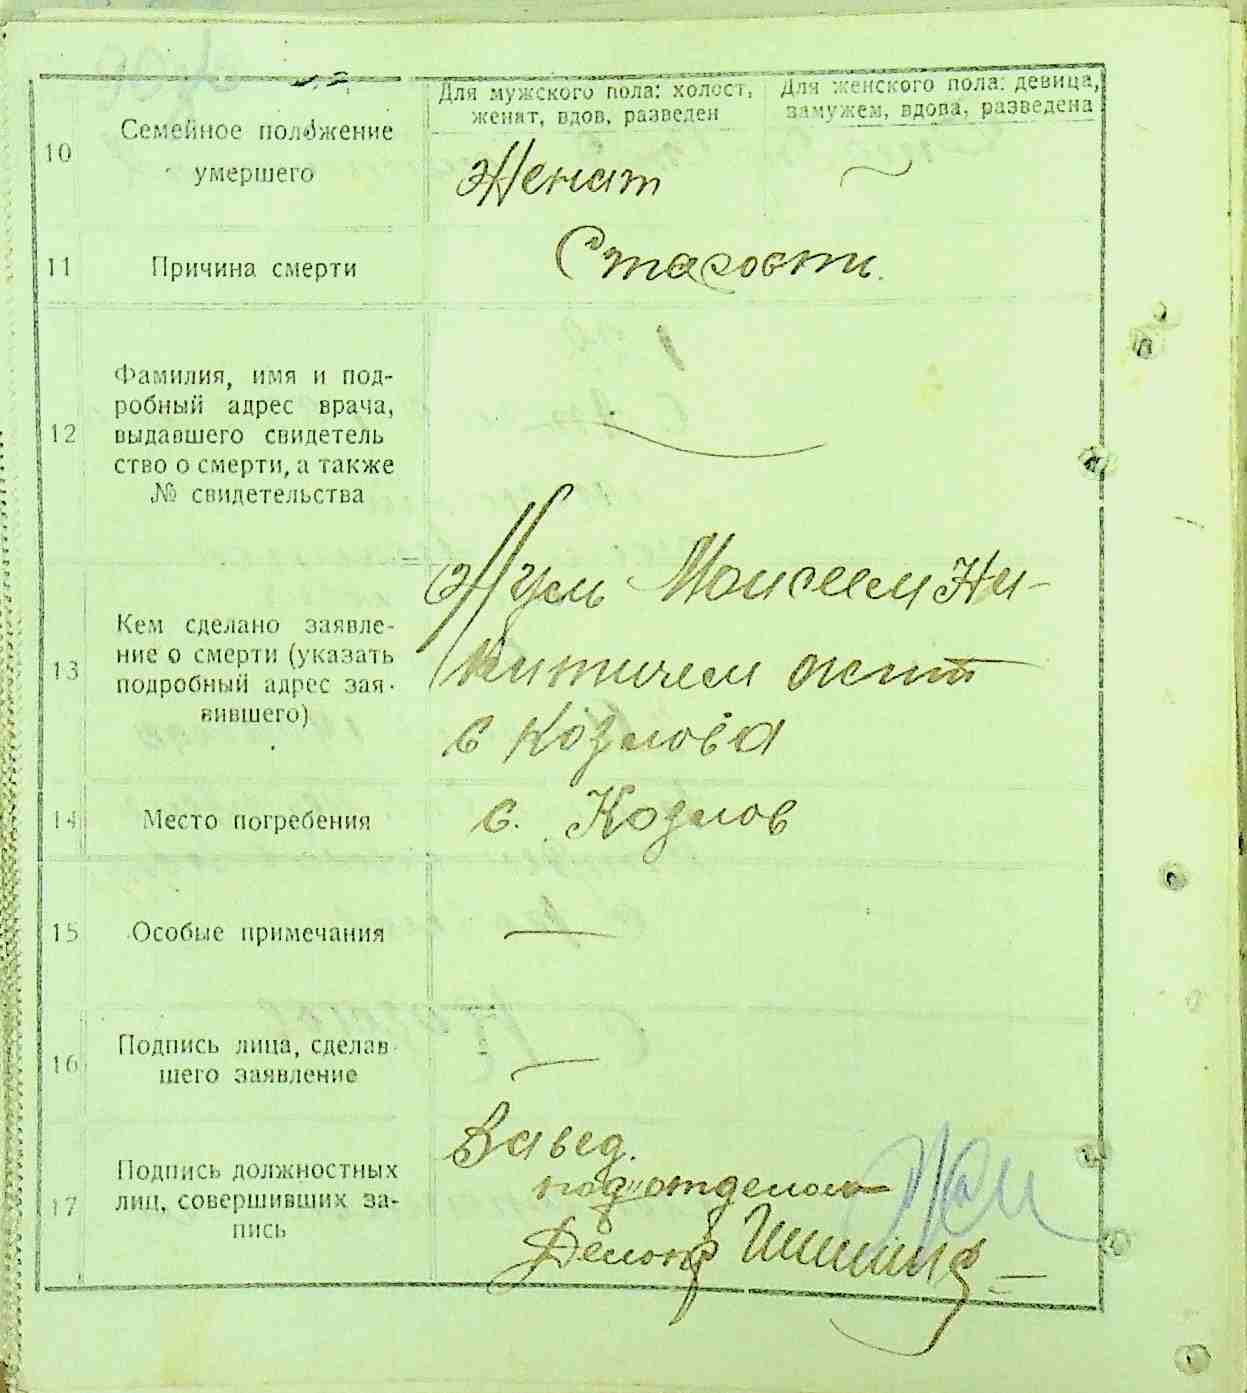 Для мужского пола: холост,
женат, вдов, разведен
Для женского пола: девица,
замужем, вдова, разведена
10
Семейное положение
умершего
Женат
11
Причина смерти
Старости.
12
Фамилия, имя и под-
робный адрес врача,
выдавшего свидетель
ство о смерти, а также
№ свидетельства
13
Кем сделано заявле-
ние о смерти (указать
подробный адрес зая-
вившего)
Моисеем Ни-
китичем жит
с Козлова
14
Место погребения
с. Козлов
15
Особые примечания
16
Подпись лица, сделав-
шего заявление
17
Подпись должностных
лиц, совершивших за-
пись
Завед.
подотделом
Делопр